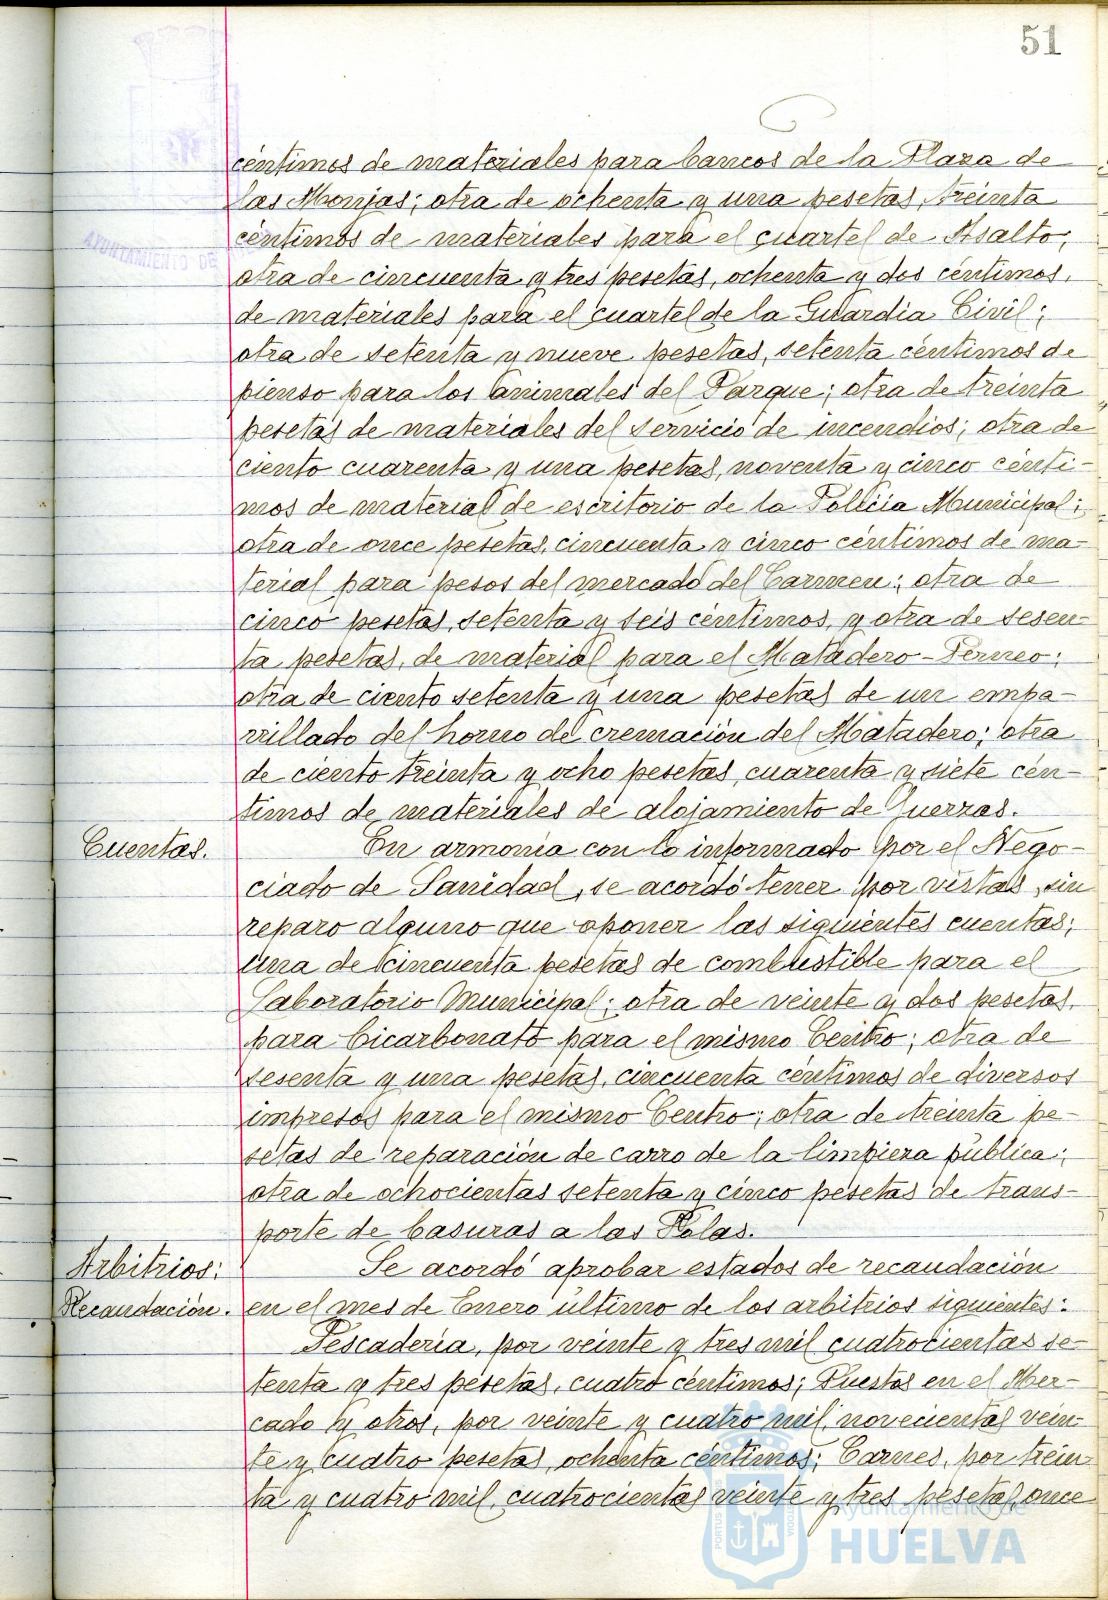 51
céntimos de materiales para bancos de la Plaza de
las Monjas; otra de ochenta y una pesetas, treinta
céntimos de materiales para el cuartel de Asalto;
otra de cincuenta y tres pesetas, ochenta y dos céntimos,
de materiales para el cuartel de la Guardia Civil;
otra de setenta y nueve pesetas, setenta céntimos de
pienso para los animales del Parque; otra de treinta
pesetas de materiales del servicio de incendios; otra de
ciento cuarenta y una pesetas, noventa y cinco cénti-
mos de material de escritorio de la Policía Municipal;
otra de once pesetas, cincuenta y cinco céntimos de ma-
terial para pesos del mercado del Carmen; otra de
cinco pesetas, setenta y seis céntimos, y otra de sesen-
ta pesetas, de material para el Matadero-Perneo;
otra de ciento setenta y una pesetas de un empa-
rrillado del horno de cremación del Matadero; otra
de ciento treinta y ocho pesetas, cuarenta y siete cén-
timos de materiales de alojamiento de fuerzas.
Cuentas.
En armonía con lo informado por el Nego-
ciado de Sanidad, se acordó tener por vistas, sin
reparo alguno que oponer las siguientes cuentas;
una de cincuenta pesetas de combustible para el
Laboratorio Municipal; otra de veinte y dos pesetas,
para bicarbonato para el mismo Centro; otra de
sesenta y una pesetas, cincuenta céntimos de diversos
impresos para el mismo Centro; otra de treinta pe-
setas de reparación de carro de la limpieza pública;
otra de ochocientas setenta y cinco pesetas de trans-
porte de basuras a las
Arbitrios:
Recaudación.
Se acordó aprobar estados de recaudación
en el mes de Enero último de los arbitrios siguientes:
Pescadería, por veinte y tres mil cuatrocientas se-
tenta y tres pesetas, cuatro céntimos; Puestos en el Mer-
cado y otros, por veinte y cuatro mil, novecientas vein-
te y cuatro pesetas, ochenta céntimos; Carnes, por trein-
ta y cuatro mil, cuatrocientas veinte y tres pesetas, once
AYUNTAMIENTO DE
Ayuntamiento de
HUELVA